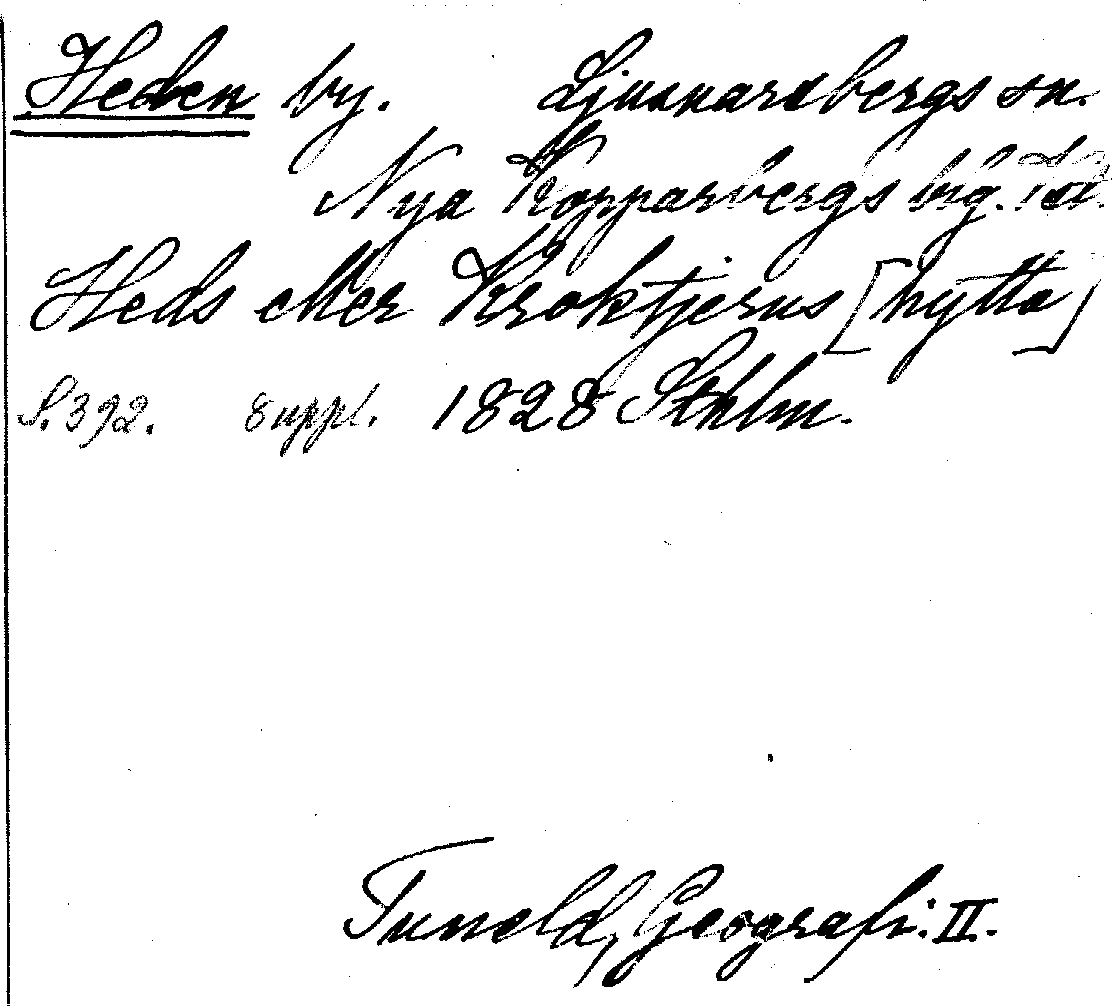 Heden by. Ljusnarsbergs sn.
Nya Kopparbergs brg.
Heds eller Kroktjerns [hytta]
S. 392. 8 uppl. 1828 Sthlm.
Tuneld, Geografi. II.